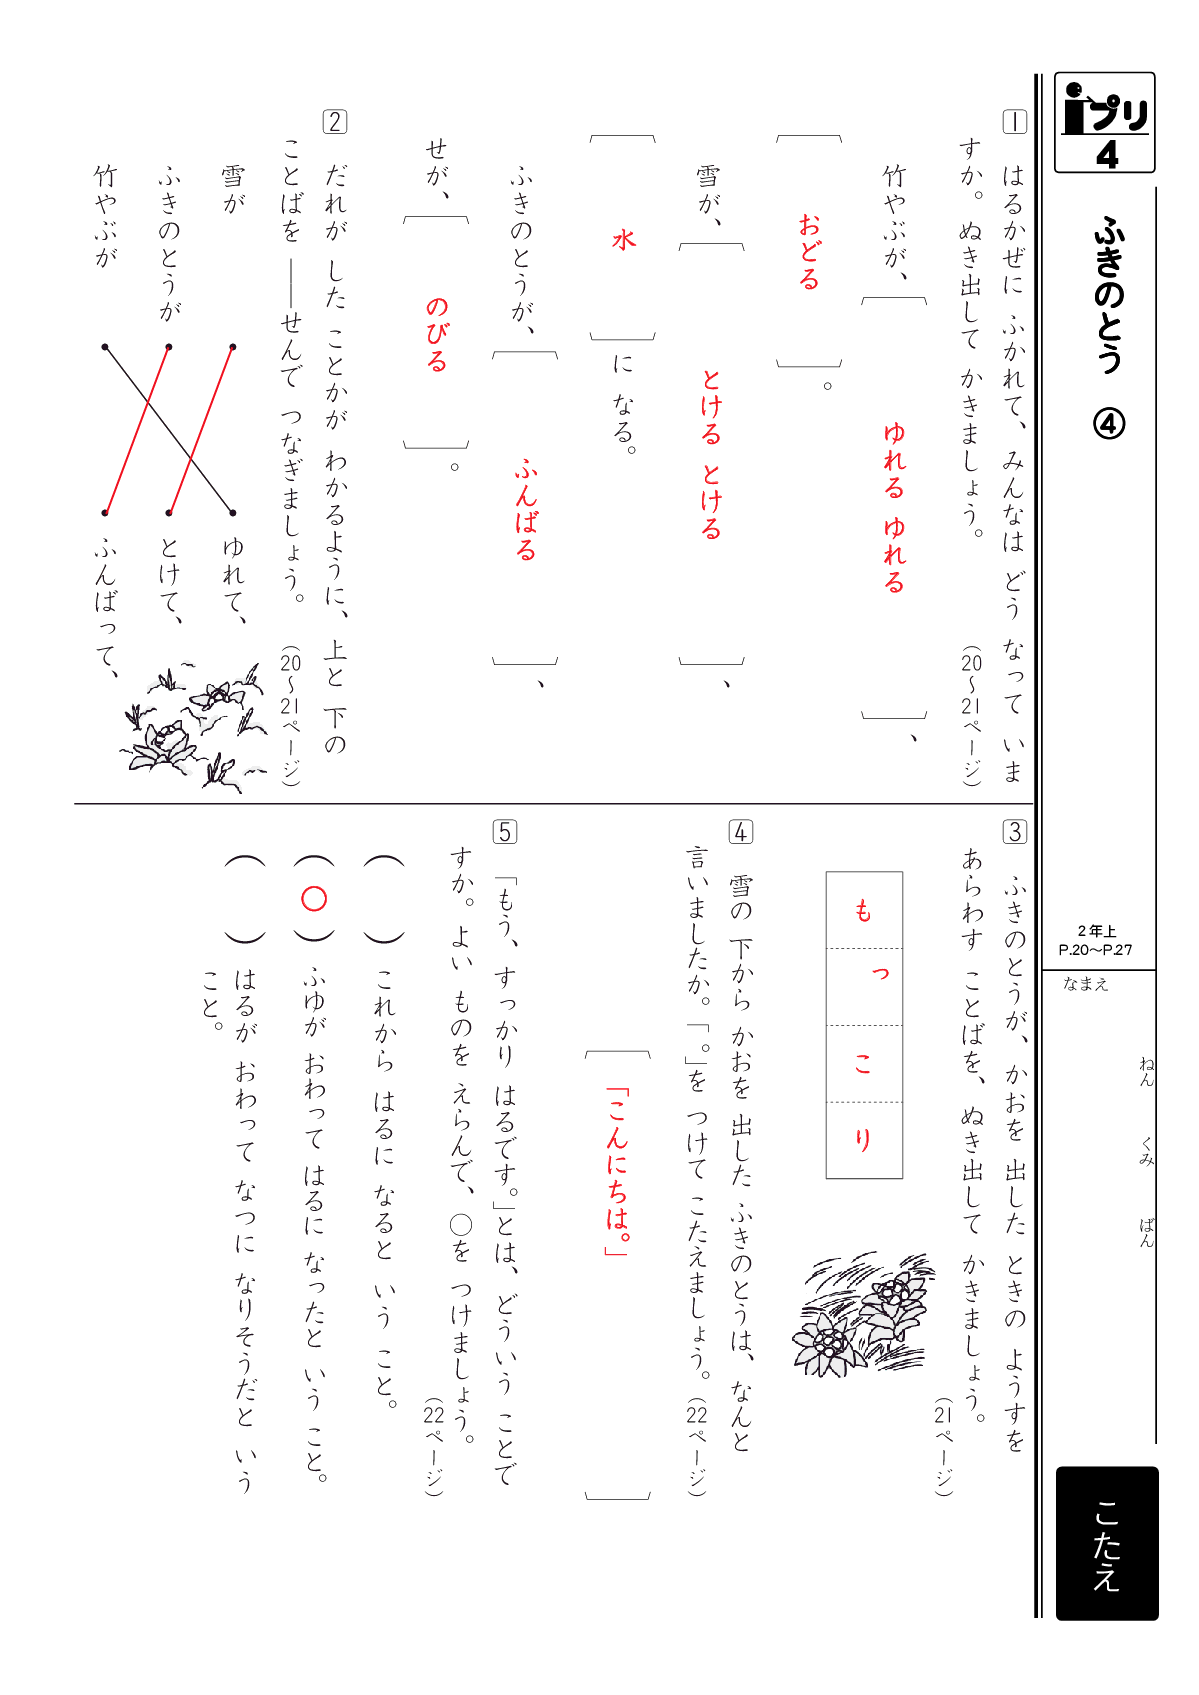 iプリ
4
ふきのとう ④
2年上
P.20〜P.27
なまえ
ねん くみ ばん
こたえ
1 はるかぜに ふかれて、みんなは どう なって いま
すか。ぬき出して かきましょう。
(20〜21ページ)
竹やぶが、
ゆれる ゆれる
、
おどる
。
雪が、
とける とける
、
水
に なる。
ふきのとうが、
ふんばる
、
せが、
のびる
。
2 だれが した ことかが わかるように、上と 下の
ことばを ――せんで つなぎましょう。
(20〜21ページ)
雪が
ふきのとうが
竹やぶが
ゆれて、
とけて、
ふんばって、
3 ふきのとうが、かおを 出した ときの ようすを
あらわす ことばを、ぬき出して かきましょう。
(21ページ)
もっこり
4 雪の 下から かおを 出した ふきのとうは、なんと
言いましたか。「。」を つけて こたえましょう。
(22ページ)
「こんにちは。」
5 「もう、すっかり はるです。」とは、どういう ことで
すか。よい ものを えらんで、○を つけましょう。
(22ページ)
( ) これから はるに なると いう こと。
(○) ふゆが おわって はるに なったと いう こと。
( ) はるが おわって なつに なりそうだと いう
こと。